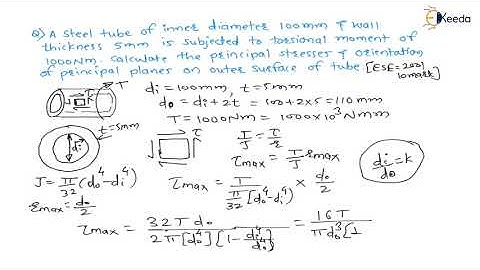 Ekeeda
Q) A steel tube of inner diameter 100mm & wall
thickness 5mm is subjected to torsional moment of
1000Nm. Calculate the principal stresses & orientation
of principal planes on outer surface of tube. [ESE=2001
10mark]
T
τ
di = 100mm, t = 5mm
do = di + 2t = 100 + 2×5 = 110mm
T = 1000Nm = 1000×10³ Nmm
t=5mm
di
τ
T/J = τ/r
τmax = T/J rmax
di/do = k
J = π/32 (do⁴ - di⁴)
τmax = T / π/32 [do⁴ - di⁴] × do/2
rmax = do/2
τmax = 32 T do / 2π[do⁴] [1 - di⁴/do⁴] = 16T / πdo³ [1